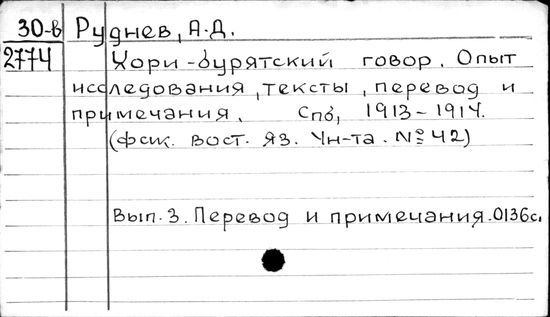 30-в Руднев, А.Д.
2774 Хори-бурятский говор. Опыт
исследования, тексты, перевод и
примечания. Спб, 1913-1914.
(фак. вост. яз. Ун-та. № 42)
Вып. 3. Перевод и примечания. 0136с.